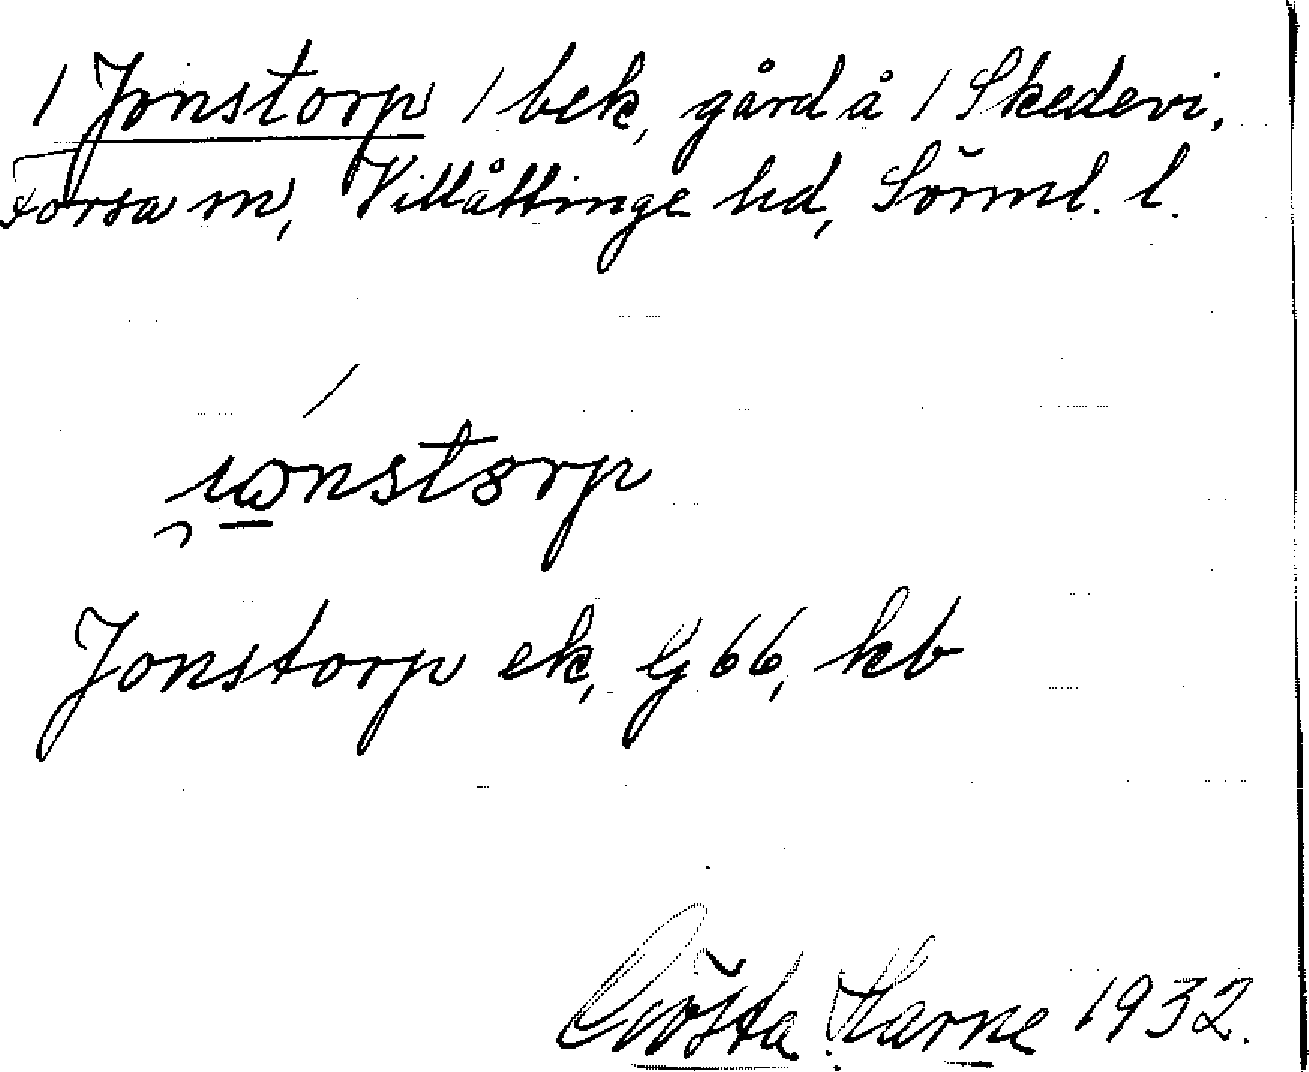 1 Jonstorp 1 bek, gård å 1 Skedevi,
Forsa sn, Villåttinge hd, Sörml. l.
Jonstorp ek, G 66, kb
Gösta Harne 1932.